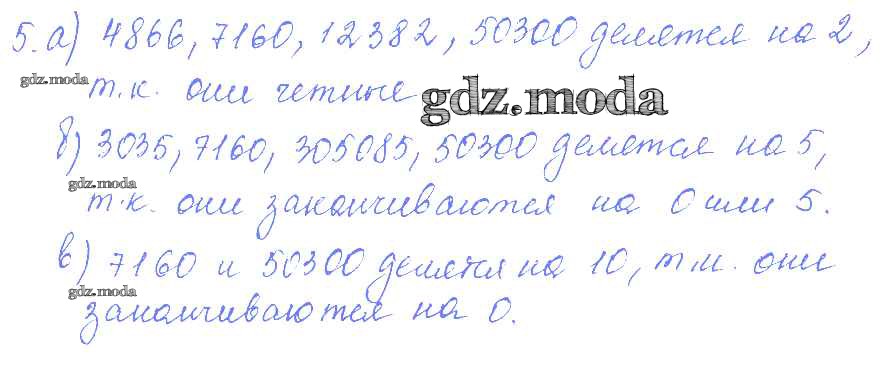 5. а) 4866, 7160, 12382, 50300 делятся на 2,
gdz.moda
т.к. они четные gdz.moda
б) 3035, 7160, 305085, 50300 делятся на 5,
gdz.moda
т.к. они заканчиваются на 0 или 5.
в) 7160 и 50300 делятся на 10, т.к. они
gdz.moda
заканчиваются на 0.